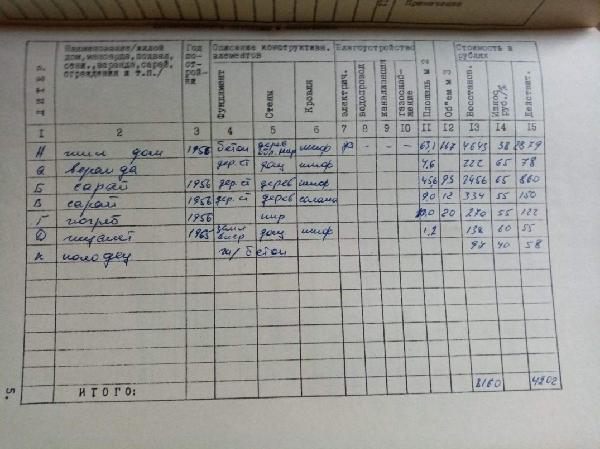 Примечание
Литер.
Наименование/жилой дом, мансарда, подвал, сени, веранда, сарай, ограждения и т.п./
Год постройки
Описание конструктивн. элементов
Благоустройство
Площадь м 2
Объем м 3
Стоимость в рублях
Фундамент Стены Кровля электрич. водопровод канализация газоснабжение Восстанов. Износ руб./% Действит.
1 2 3 4 5 6 7 8 9 10 11 12 13 14 15
жил дом 1956 бетон дерев шиф - - - 63,1 167 4643 38 2879
а веранда дер.ст дощ шиф 7,6 222 65 78
Б сарай 1956 дер.ст дерев шиф 45,6 93 2456 65 860
В сарай 1956 дер.ст дерев солома 9,0 12 334 55 150
Г погреб 1956 кир 10,0 20 270 55 122
туалет 1965 дощ шиф 1,2 138 60 55
К колодец ж/бетон 97 40 58
ИТОГО: 8160 4202
5.